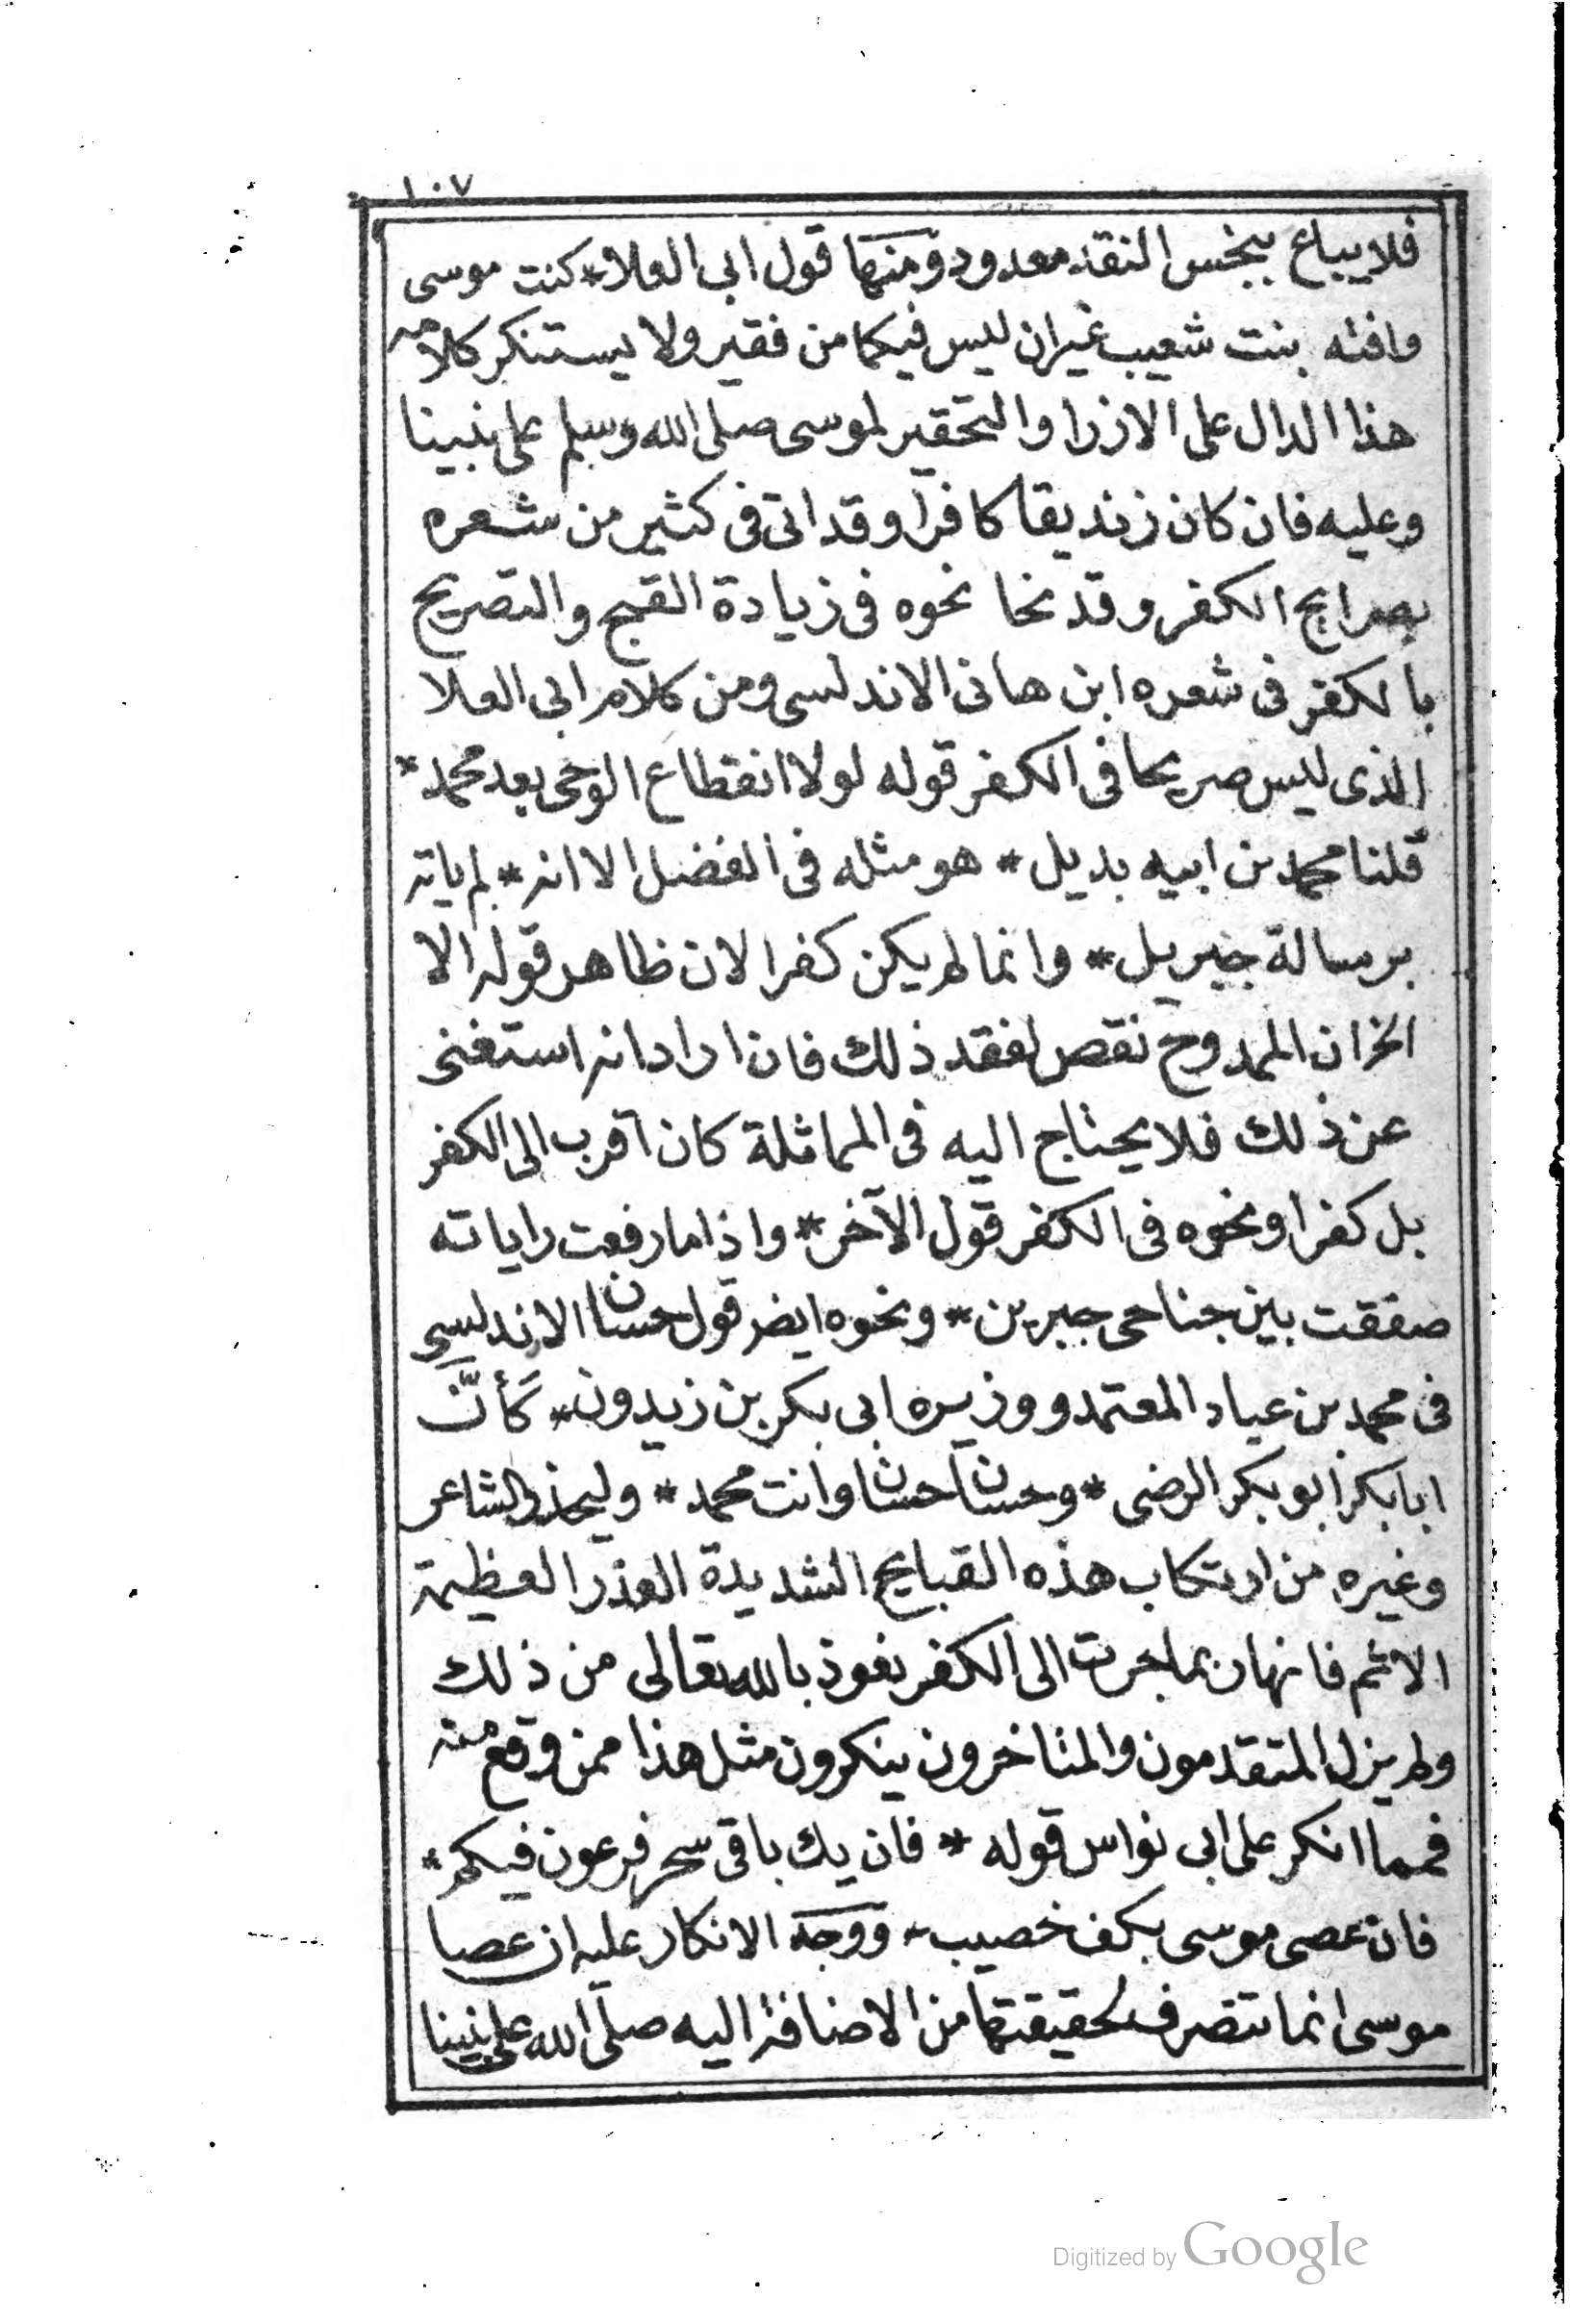 ١٠٧
فلا يباع ببخس النقد معدود ومنها قول ابى العلا * كنت موسى
وافته بنت شعيب غيران ليس فيكما من فقير ولا يستنكر كلامه
هذا الدال على الازرا والتحقير لموسى صلى الله وسلم على نبينا
وعليه فان كان زنديقا كافرا وقد اتى فى كثير من شعره
بصرايح الكفر وقد نحا نحوه فى زيادة القبح والتصريح
بالكفر فى شعره ابن هانى الاندلسى ومن كلام ابى العلا
الذى ليس صريحا فى الكفر قوله لولا انقطاع الوحى بعد محمد *
قلنا محمد من ابيه بديل * هو مثله فى الفضل الا انه * لم ياته
برسالة جبريل * وانما لم يكن كفرا لان ظاهر قوله الا
الخ ان الممدوح نقص لفقد ذلك فان اراد انه استغنى
عن ذلك فلا يحتاج اليه فى المماثلة كان اقرب الى الكفر
بل كفرا ونحوه فى الكفر قول الآخر * واذا ما رفعت راياته
صفقت بين جناحى جبرين * ونحوه ايضر قول حسان الاندلسى
فى محمد بن عباد المعتمد ووزيره ابى بكر بن زيدون * كَأنَّ
ابابكر ابو بكر الرضى * وحسان حسان وانت محمد * وليحذر الشاعر
وغيره من ارتكاب هذه القبايح الشديدة العذر العظيمة
الاثم فانها ربما جرت الى الكفر نعوذ بالله تعالى من ذلك
ولم يزل المتقدمون والمتاخرون ينكرون مثل هذا ممن وقع منه
فمما انكر على ابى نواس قوله * فان يك باقى سحر فرعون فيكم *
فان عصى موسى بكف خصيب * ووجه الانكار عليه ان عصا
موسى انما تتصرف لحقيقتها من الاضافة اليه صلى الله على نبينا
Digitized by Google